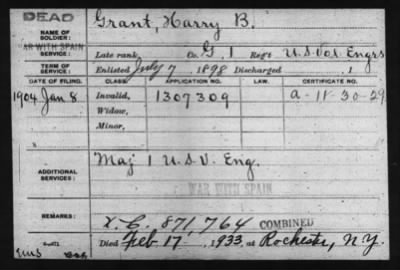 DEAD
Grant, Harry B.
NAME OF SOLDIER:
WAR WITH SPAIN
SERVICE:
Late rank, Co. G. 1 Reg't U.S. Vol. Engrs
TERM OF SERVICE:
Enlisted July 7 1898 Discharged , 1
DATE OF FILING. CLASS. APPLICATION NO. LAW. CERTIFICATE NO.
1904 Jan 8 Invalid, 1307309 a-11-30-29
Widow,
Minor,
ADDITIONAL SERVICES:
Maj 1 U.S.V. Eng.
WAR WITH SPAIN
REMARKS:
X.C. 871764 COMBINED
Died Feb 17 , 1933, at Rochester, N.Y.